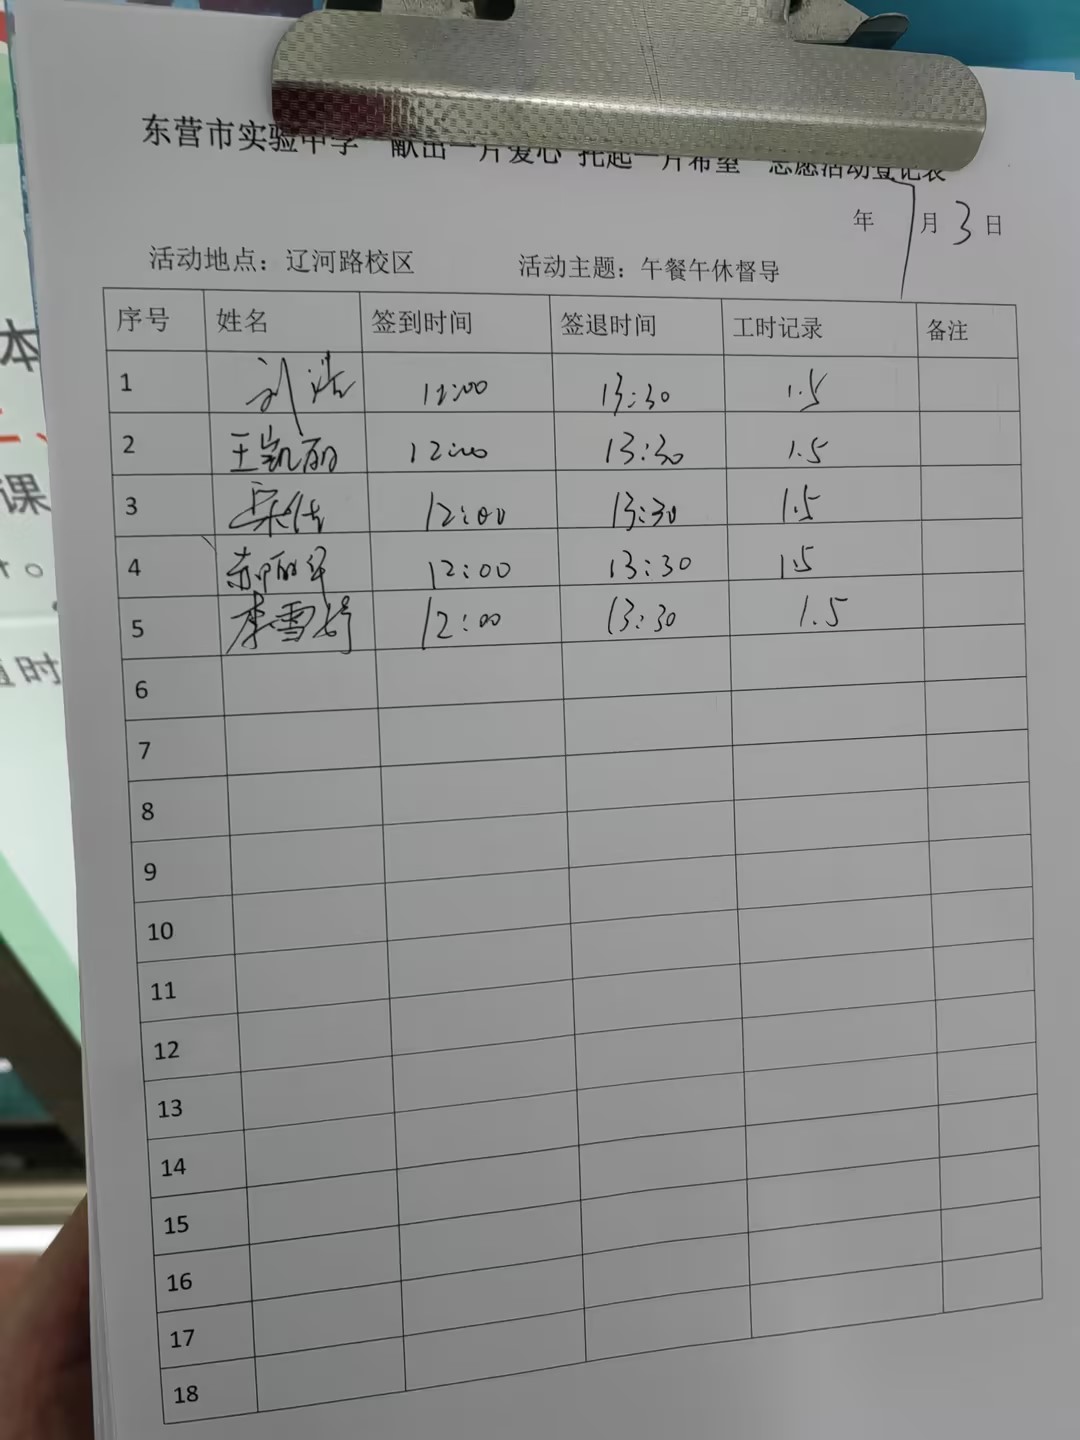 东营市实验中学 献出一片爱心 托起一片希望 志愿活动登记表
年 7月3日
活动地点：辽河路校区 活动主题：午餐午休督导
序号 姓名 签到时间 签退时间 工时记录 备注
1 刘浩 12:00 13:30 1.5
2 王凯丽 12:00 13:30 1.5
3 12:00 13:30 1.5
4 12:00 13:30 1.5
5 李雪婷 12:00 13:30 1.5
6
7
8
9
10
11
12
13
14
15
16
17
18
本
课
时